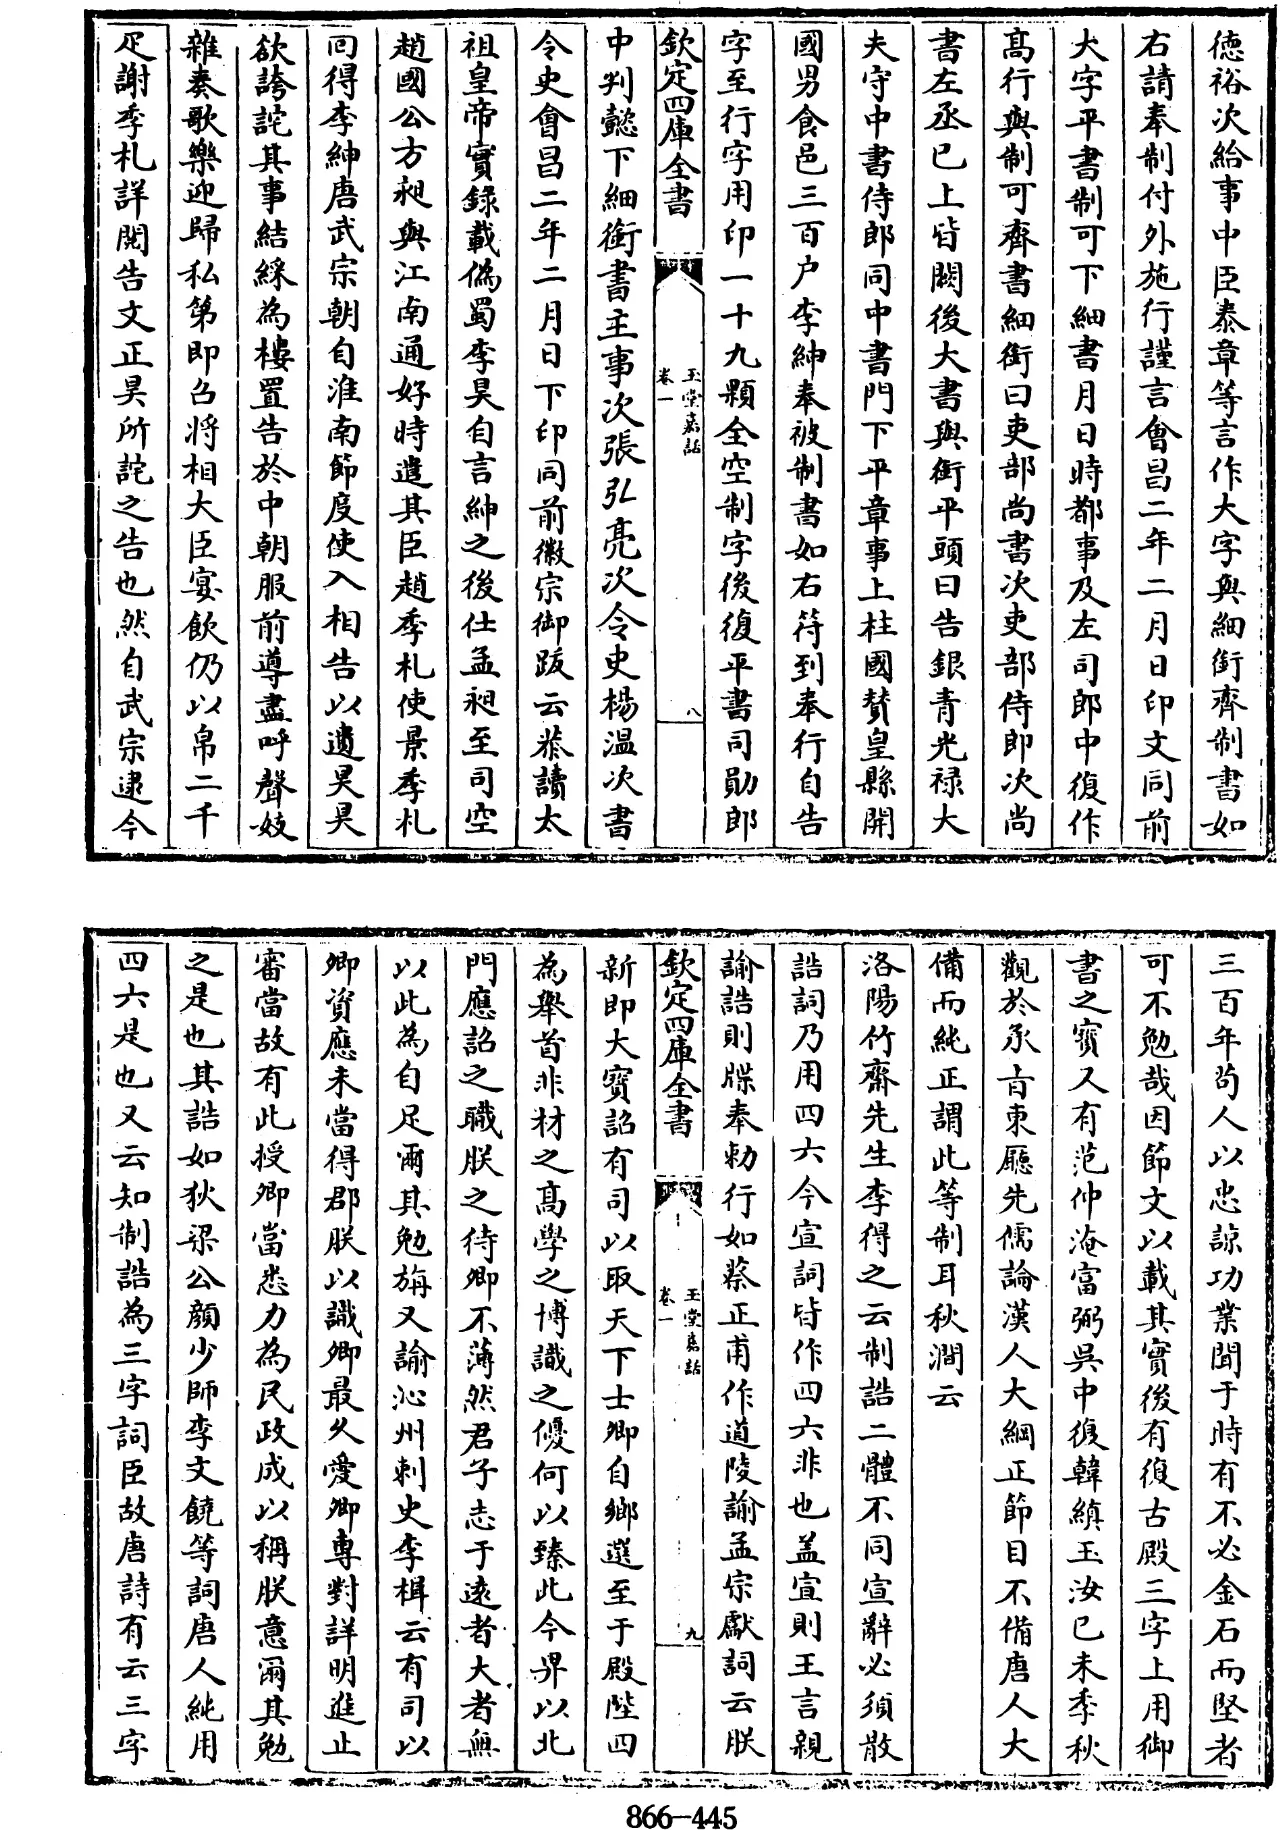 德裕次給事中臣泰章等言作大字與細銜齊制書如
右請奉制付外施行謹言會昌二年二月日印文同前
大字平書制可下細書月日時都事及左司郎中復作
髙行與制可齊書細銜曰吏部尚書次吏部侍郎次尚
書左丞已上皆闕後大書與銜平頭曰告銀青光禄大
夫守中書侍郎同中書門下平章事上柱國賛皇縣開
國男食邑三百户李紳奉被制書如右符到奉行自告
字至行字用印一十九顆全空制字後復平書司勛郎
欽定四庫全書
玉堂嘉話
卷一
八
中判懿下細銜書主事次張弘亮次令史楊温次書
令史會昌二年二月日下印同前徽宗御跋云恭讀太
祖皇帝實錄載偽蜀李昊自言紳之後仕孟昶至司空
趙國公方昶與江南通好時遣其臣趙季札使景季札
回得李紳唐武宗朝自淮南節度使入相告以遺昊昊
欲誇詫其事結綵為樓置告於中朝服前導盡呼聲妓
雜奏歌樂迎歸私第即召將相大臣宴飲仍以帛二千
疋謝季札詳閱告文正昊所詫之告也然自武宗逮今
三百年茍人以忠諒功業聞于時有不必金石而堅者
可不勉哉因節文以載其實後有復古殿三字上用御
書之寳又有范仲淹富弼吳中復韓縝玉汝已未季秋
觀於承㫖東廳先儒論漢人大綱正節目不備唐人大
備而純正謂此等制耳秋澗云
洛陽竹齋先生李得之云制誥二體不同宣辭必須散
誥詞乃用四六今宣詞皆作四六非也盖宣則王言親
諭誥則牒奉勑行如蔡正甫作道陵諭孟宗獻詞云朕
欽定四庫全書
玉堂嘉話
卷一
九
新即大寳詔有司以取天下士卿自鄉選至于殿陛四
為舉首非材之髙學之博識之優何以臻此今畀以北
門應詔之職朕之待卿不薄然君子志于遠者大者無
以此為自足爾其勉旃又諭沁州刺史李楫云有司以
卿資應未當得郡朕以識卿最久愛卿專對詳明進止
審當故有此授卿當悉力為民政成以稱朕意爾其勉
之是也其誥如狄梁公顔少師李文饒等詞唐人純用
四六是也又云知制誥為三字詞臣故唐詩有云三字
866-445